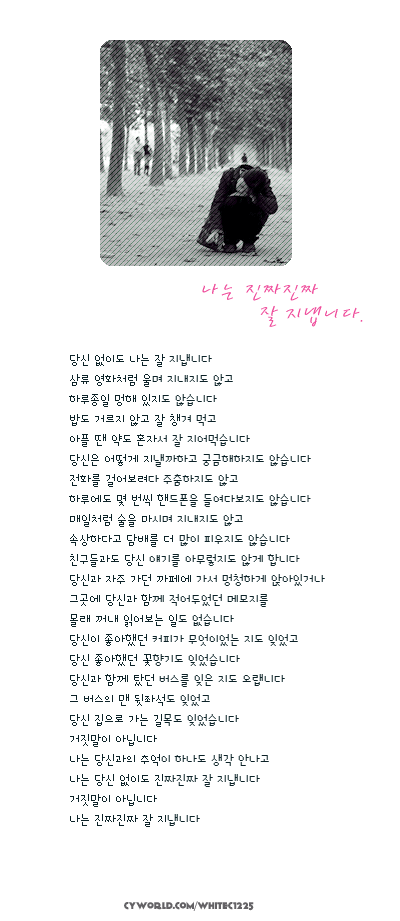 나는 진짜진짜
잘 지냅니다.
당신 없이도 나는 잘 지냅니다
삼류 영화처럼 울며 지내지도 않고
하루종일 멍해 있지도 않습니다
밥도 거르지 않고 잘 챙겨 먹고
아플 땐 약도 혼자서 잘 지어먹습니다
당신은 어떻게 지낼까하고 궁금해하지도 않습니다
전화를 걸어보려다 주춤하지도 않고
하루에도 몇 번씩 핸드폰을 들여다보지도 않습니다
매일처럼 술을 마시며 지내지도 않고
속상하다고 담배를 더 많이 피우지도 않습니다
친구들과도 당신 얘기를 아무렇지도 않게 합니다
당신과 자주 가던 까페에 가서 멍청하게 앉아있거나
그곳에 당신과 함께 적어두었던 메모지를
몰래 꺼내 읽어보는 일도 없습니다
당신이 좋아했던 커피가 무엇이었는 지도 잊었고
당신 좋아했던 꽃향기도 잊었습니다
당신과 함께 탔던 버스를 잊은 지도 오랩니다
그 버스의 맨 뒷좌석도 잊었고
당신 집으로 가는 길목도 잊었습니다
거짓말이 아닙니다
나는 당신과의 추억이 하나도 생각 안나고
나는 당신 없이도 진짜진짜 잘 지냅니다
거짓말이 아닙니다
나는 진짜진짜 잘 지냅니다
CYWORLD.COM/WHITEC1225